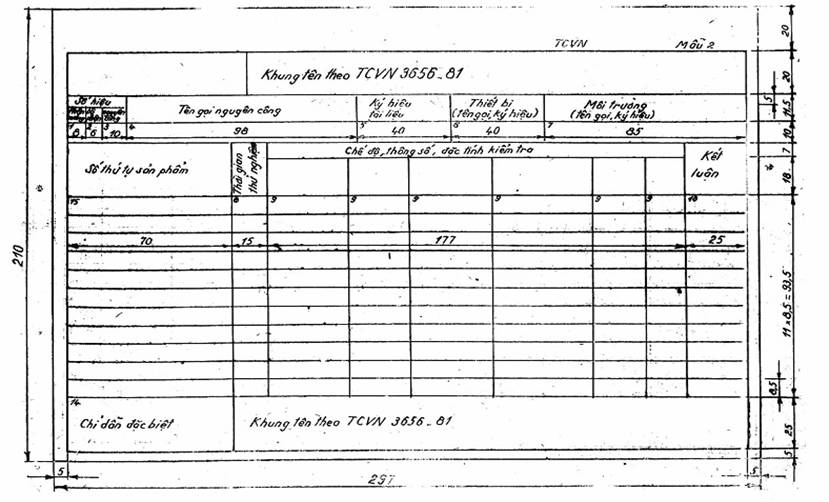 TCVN Mẫu 2
Khung tên theo TCVN 3656-81
Số hiệu
Tên gọi nguyên công
Ký hiệu
tài liệu
Thiết bị
(tên gọi, ký hiệu)
Môi trường
(tên gọi, ký hiệu)
1 2 3 4 5 6 7
8 6 10 98 40 40 85
Số thứ tự sản phẩm
Thời gian
thử nghiệm
Chế độ, thông số, đặc tính kiểm tra
Kết
luận
15 8 9 9 9 9 9 9 10
70 15 177 25
14
Chỉ dẫn đặc biệt
Khung tên theo TCVN 3656-81
20
20
5
11,5
10
7
18
11 x 8,5 = 93,5
8,5
25
5
210
5
297
5